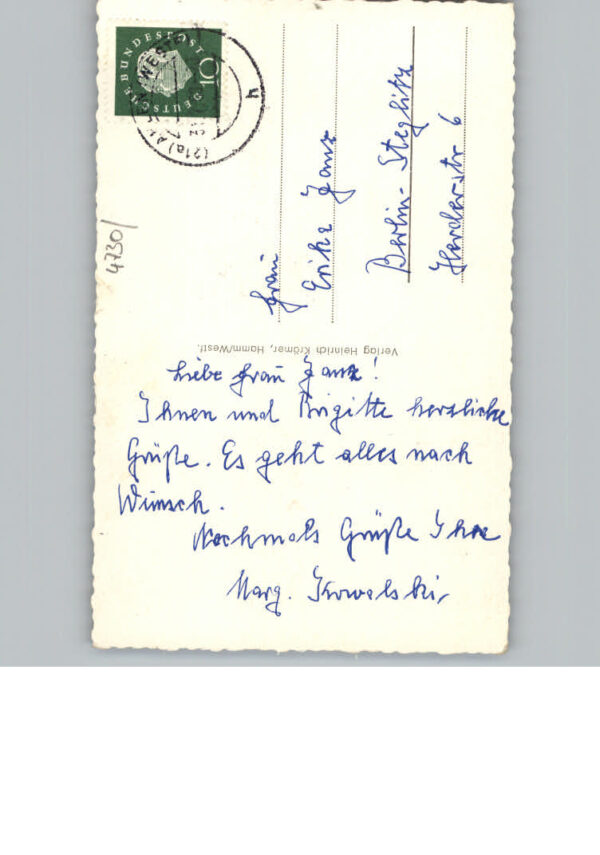 DEUTSCHE BUNDESPOST
10
(21a) AHLEN (WESTF)
h
4730/
Frau
Erika Ganz
Berlin-Steglitz
Herderstr 6
Verlag Heinrich Krämer, Hamm/Westf.
Liebe Frau Ganz!
Ihnen und Brigitte herzliche
Grüße. Es geht alles nach
Wunsch.
Nochmals Grüße Ihre
Marg. Kowalski